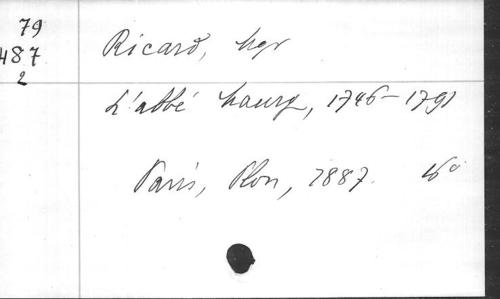 79
487
2
Ricard, Mgr
L'abbé Maury, 1746-1791
Paris, Plon, 1887. 16°